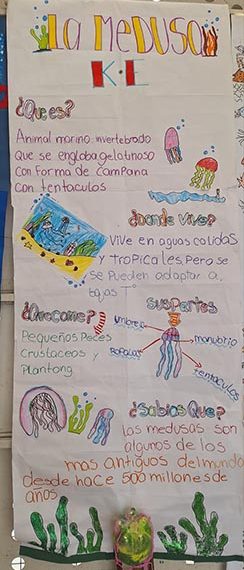 La MeDUSa
K E
¿Que es?
Animal marino: invertebrado
Que se engloba gelatinoso
con forma de campana
con tentaculos
¿donde Vive?
Vive en aguas calidas
y TroPicales, Pero se
se Pueden adaptar a
bajas T°
¿Que come?
Pequeños Peces
Crustaceos y
Plantong
sus Partes
umbrela
manubrio
tentaculos
¿Sabias Que?
las medusas son
algunos de los
mas antiguos del mundo
desde hace 500 millones de
años